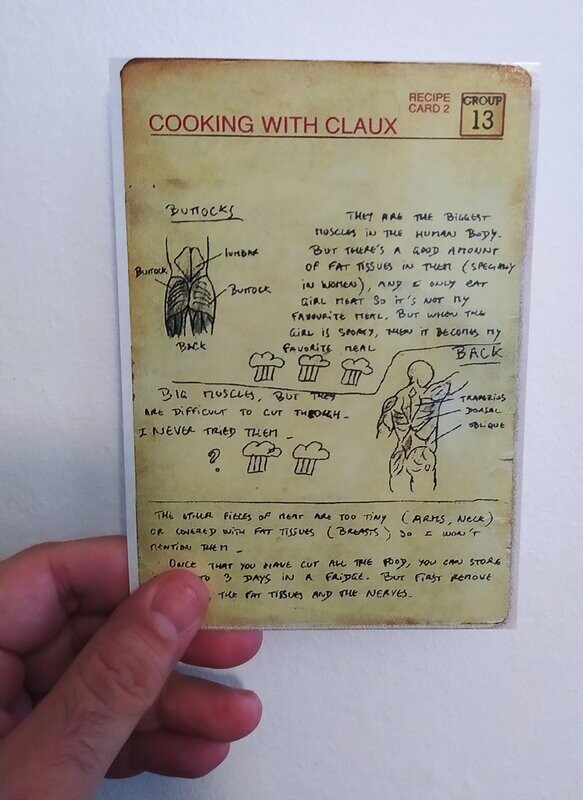 RECIPE
CARD 2
GROUP
13
COOKING WITH CLAUX
BUTTOCKS
LUMBAR
BUTTOCK
BUTTOCK
BACK
THEY ARE THE BIGGEST
MUSCLES IN THE HUMAN BODY.
BUT THERE'S A GOOD AMOUNT
OF FAT TISSUES IN THEM (SPECIALLY
IN WOMEN), AND I ONLY EAT
GIRL MEAT SO IT'S NOT MY
FAVOURITE MEAL. BUT WHEN THE
GIRL IS SPORTY, THEN IT BECOMES MY
FAVORITE MEAL
BACK
BIG MUSCLES, BUT THEY
ARE DIFFICULT TO CUT THROUGH.
I NEVER TRIED THEM _
?
TRAPEZIUS
DORSAL
OBLIQUE
THE OTHER PIECES OF MEAT ARE TOO TINY (ARMS, NECK)
OR COVERED WITH FAT TISSUES (BREASTS) SO I WON'T
MENTION THEM _
ONCE THAT YOU HAVE CUT ALL THE FOOD, YOU CAN STORE
TO 3 DAYS IN A FRIDGE. BUT FIRST REMOVE
THE FAT TISSUES AND THE NERVES.